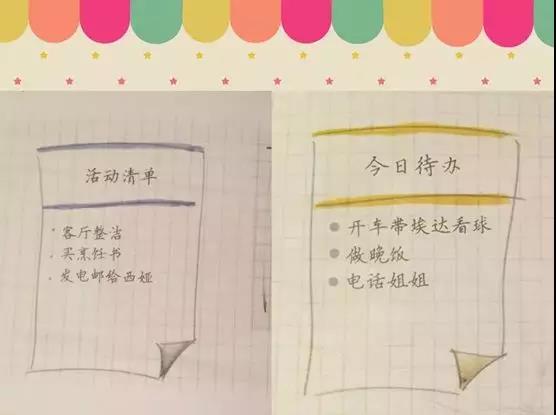 活动清单
· 客厅整洁
· 买烹饪书
· 发电邮给西娅
今日待办
● 开车带埃达看球
● 做晚饭
● 电话姐姐